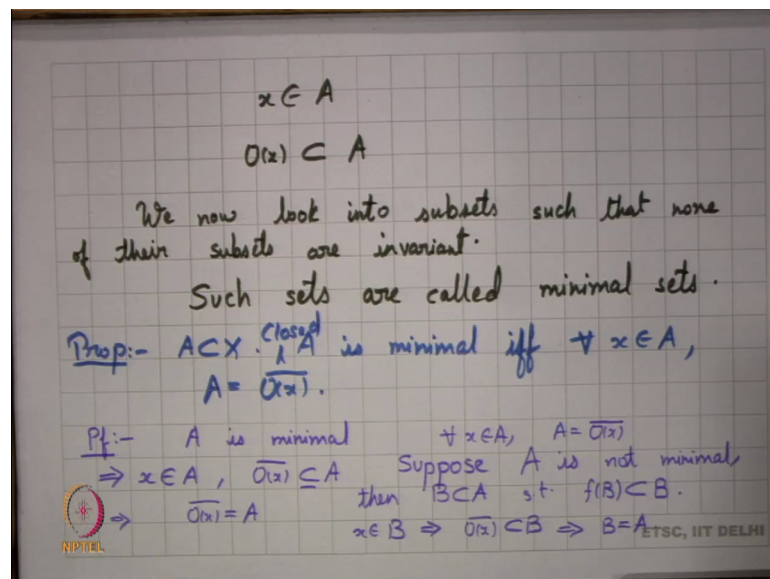 x ∈ A
O(x) ⊂ A
We now look into subsets such that none
of their subsets are invariant.
Such sets are called minimal sets.
Prop:- A⊂X. Closed A is minimal iff ∀ x∈A,
A = \overline{O(x)}.
Pf:- A is minimal
⇒ x∈A, \overline{O(x)} ⊆ A
⇒ \overline{O(x)} = A
∀ x∈A, A = \overline{O(x)}
Suppose A is not minimal,
then B⊂A s.t. f(B)⊂B.
x∈B ⇒ \overline{O(x)} ⊂B ⇒ B=A
NPTEL
ETSC, IIT DELHI